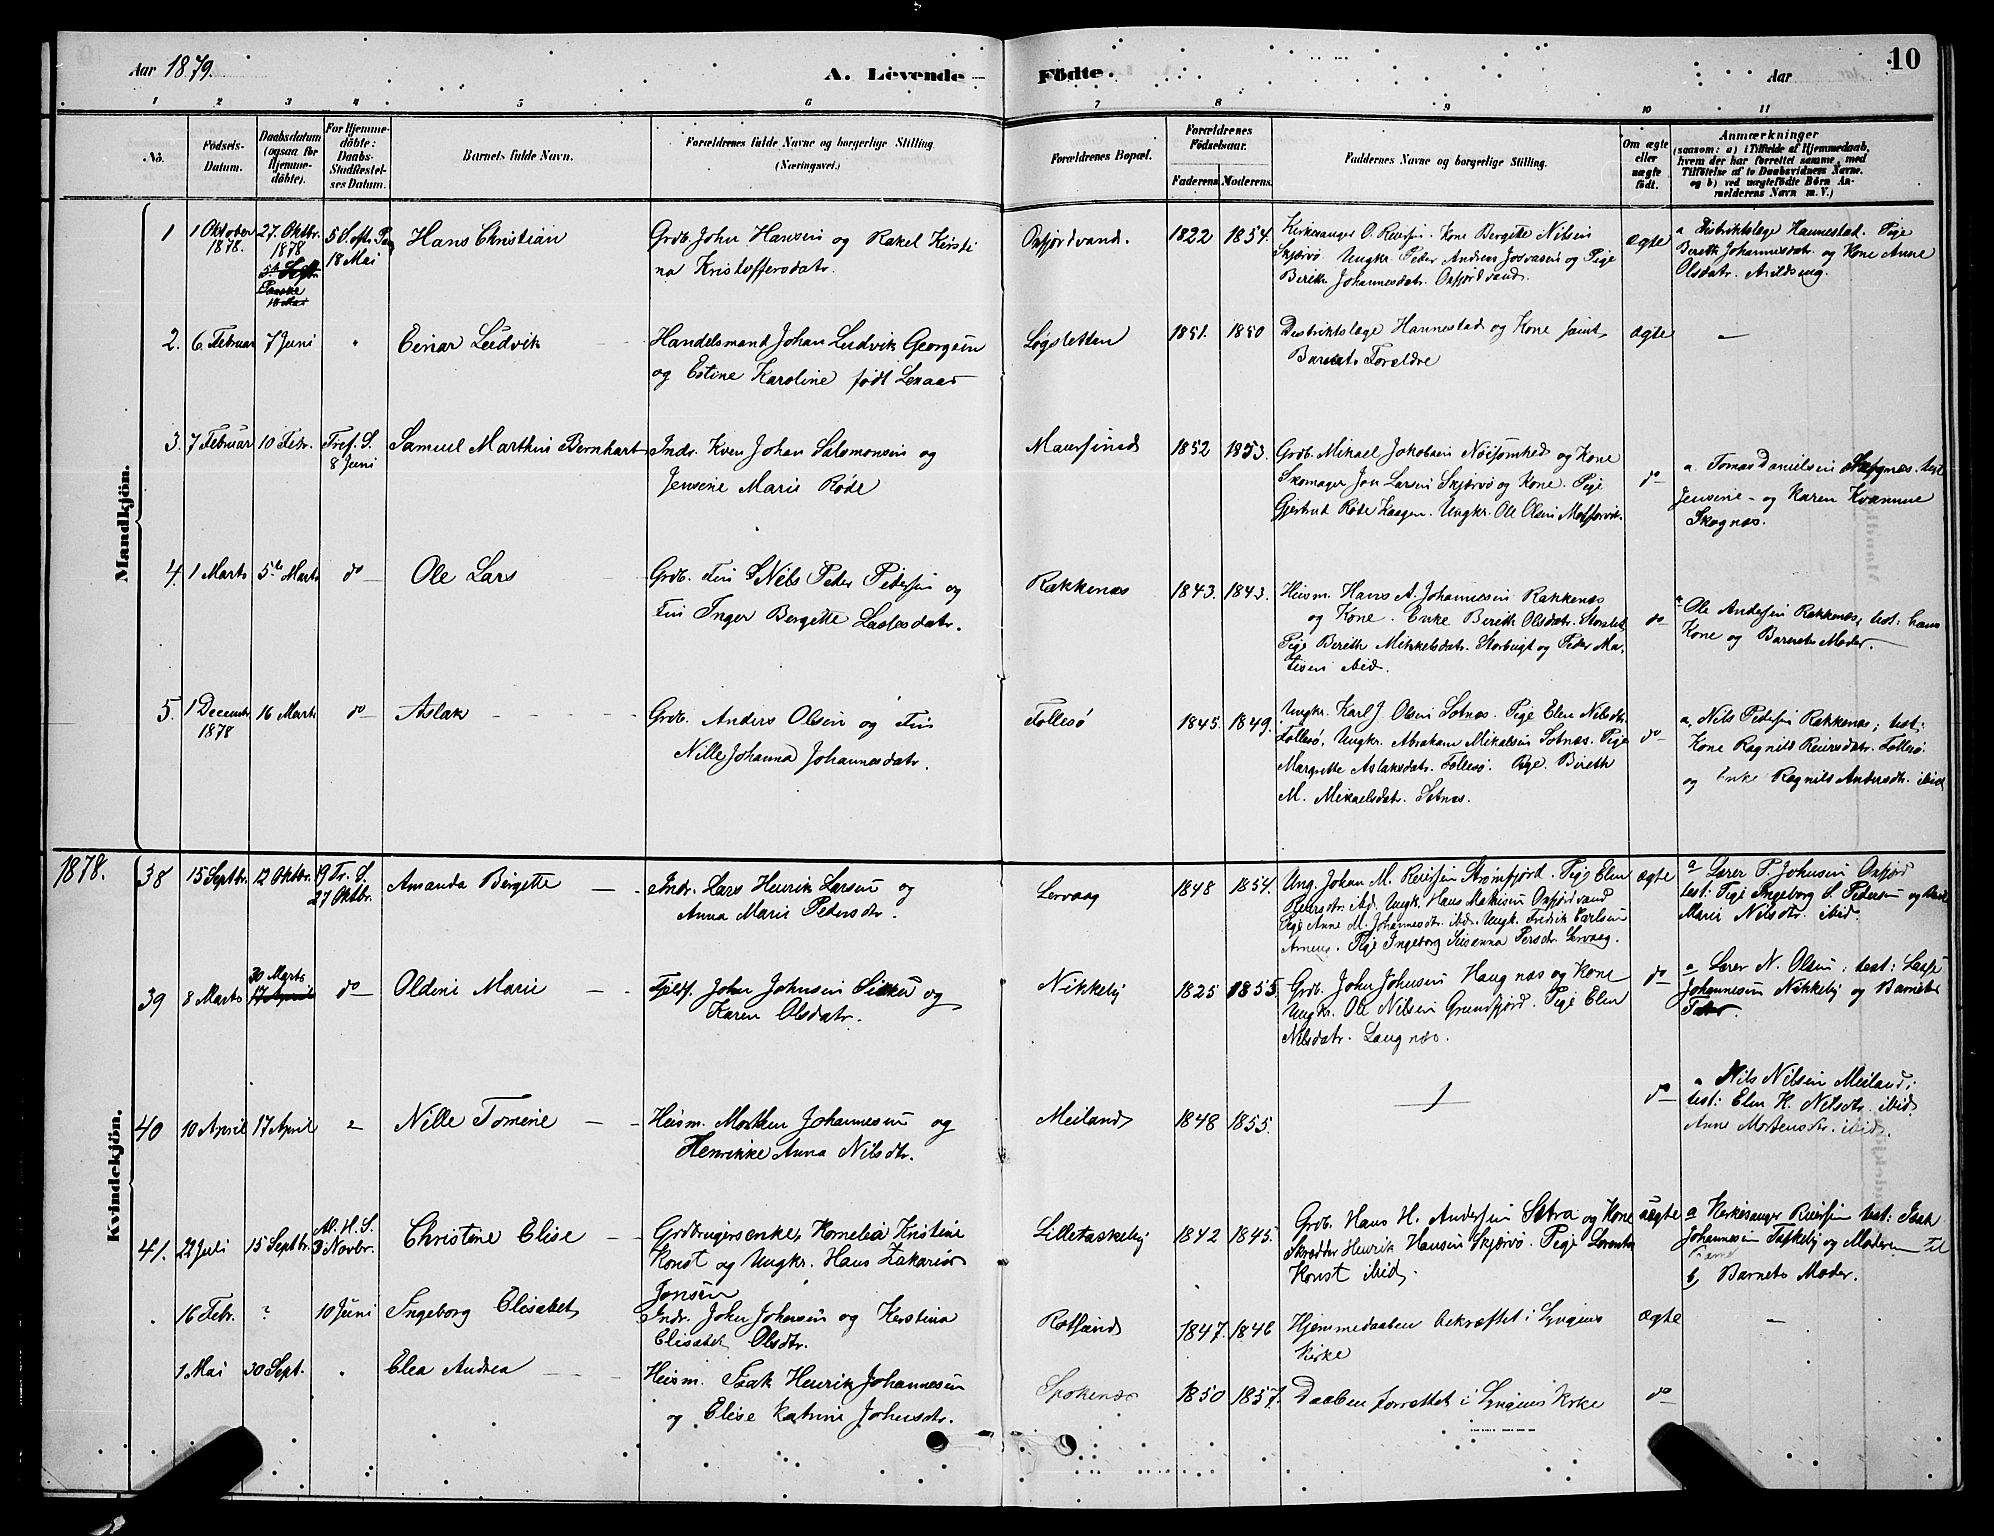 Aar 1879.
A. Levende Födte.
Aar
10
1 2 3 4 5 6 7 8 9 10 11
No.
Födsels-Datum.
Daabsdatum (ogsaa for Hjemme-döbte).
For Hjemme-döbte: Daabs-Stadfæstel-ses Datum.
Barnets fulde Navn.
Forældrenes fulde Navne og borgerlige Stilling (Næringsvei.)
Forældrenes Bopæl.
Forældrenes Födselsaar.
Faderens Moderens.
Faddernes Navne og borgerlige Stilling.
Om ægte eller uægte födt.
Anmærkninger
(saasom: a) i Tilfælde af Hjemmedaab, hvem der har forrettet samme, med Tilföielse af to Daabsvidners Navne. og b) ved uægtefödte Börn An-melderens Navn m.V.)
Mandkjön.
1 1 Oktober 1878. 27. Oktbr. 1878 5 S. eft. Paa 18 Mai
Hans Christian
Grdb. John Hansen og Rakel Kirsti
na Kristoffersdatr.
Oxfjordvand.
1822 1854.
Kirkesanger O. Reiersen. Kone Bergitte Nilsen
Skjærvö Ungkr. Peder Andreas Josvasen og Pige
Berith Johannesdatr. Oxfjordvand.
ægte
a Distriktslæge Hannestad. Pige
Bereth Johannesdatr. og Kone Anne
Olsdatr.
2. 6 Februar 7 Juni "
Einar Ludvik
Handelsmand Johan Ludvik Georgsen
og Estine Karoline født Lenaas
Løgsletten
1851. 1850
Distriktslæge Hannestad og Kone samt
Barnets Forældre
ægte —
3. 7 Februar 10 Febr. Tref. S. 8 Juni
Samuel Marthin Bernhart
Indr. Kven Johan Salomonsen og
Jensine Marie Røde
Maursund
1852 1853.
Grdb. Mikael Jakobsen Nöisomhed og Kone
Skomager Jon Larsen Skjærvö og Kone. Pige
Gjertrud Røde Kaagen. Ungkr. Ole Olsen
do
a. Tomas Danielsen test
Jensine - og Karen Kvamme
Skognæs.
4. 1 Marts 5te Marts do
Ole Lars
Grdb. Fin Nils Peder Pedersen og
Fin Inger Bergitte Larsdatr.
Rakkenæs
1843. 1843.
Heism. Hans A. Johannesen Rakkenæs
og Kone. Enke Berith Olsdatr. Storslet
Pige Bereth Mikkelsdatr. Storbugt og Peder Ma-
tisen ibid.
do
a Ole Andersen Rakkenæs, test: hans
Kone og Barnets Moder.
5. 1 December 1878 16 Marts do
Aslak
Grdb. Anders Olsen og Fin
Nille Johanna Johannesdatr.
Follesö
1845. 1849.
Ungkr. Karl J. Olsen Sotnæs. Pige Elen Nilsdtr.
Follesö, Ungkr. Abraham Mikalsen Sotnæs. Pige
Margrethe Aslaksdatr. Follesö. Pige. Bireth
M. Mikaelsdatr. Sotnæs.
do
a. Nils Pedersen Rakkenæs; test:
Kone Ragnild Reiersdatr. Follesö
og Enke Ragnild Andersdtr. ibid
1878.
Kvindekjön.
38 15 Septbr. 12 Oktbr. 19 Tr. S. 27 Oktbr.
Amanda Birgette
Indr. Lars Henrik Larsen og
Anna Marie Pedersdtr.
Lervaag
1848 1854.
Ung. Johan M. Reiersen Strömfjord. Pige Elen
Reiersdtr. ibid. Ungk. Hans Mathisen Oxfjordvand
Pige Anne M. Johannesdtr. ibid. Ungk. Fredrik Carlsen
Pige Ingeborg Susanna Persdtr. Lervaag.
ægte
a Lærer P. Johnsen Oxfjord
test: Pige Ingeborg S. Pedersen og
Marie Nilsdtr. ibid.
39 8 Marts 30 Marts 17 April do
Oldine Marie
John Johnsen og
Karen Olsdatr.
Nikkeby
1825 1855.
Grdb. John Johnsen Haugnæs og Kone
Ungkr. Ole Nilsen Grundfjord. Pige Elen
Nilsdatr. Laugnæs.
do
a Lærer N. Olsen: test:
Johannesen Nikkeby og Barnets
Fader.
40 10 April 17 April "
Nille Tomine
Heism. Morten Johannesen og
Henrikke Anna Nilsdtr.
Meiland
1848 1855.
do
a Nils Nilsen Meiland;
test: Elen K. Nilsdtr. ibid
Anne Mortensdtr. ibid.
41. 22 Juli 15 Septbr. Al. H. S. 3 Novbr.
Christine Elise
Grdbrugerenke Kornelia Kristine
Konst og Ungkr. Hans Zakarias
Jensen
Lilletaskeby
1842 1845.
Grdb. Hans H. Andersen Sætra og Kone
Skrædder Henrik Hansen Skjærvö. Pige Lorenta
Konst ibid.
uægte
a Kirkesanger Reiersen test: Isak
Johannesen Taskeby og Moderen
b, Barnets Moder.
16 Febr. ? 10 Juni
Ingeborg Elisabet
Indr. John Johnsen og Kerstina
Elisabet Olsdtr.
Rotsund
1847. 1846
Hjemmedaaben bekræftet i Lyngens
Kirke
ægte —
1 Mai 30 Sept. "
Elea Andrea
Heism. Isak Henrik Johannesen
og Elise Katrine Johnsdtr.
Spokenæs
1850 1857.
Daaben forrettet i Lyngens Kirke
do